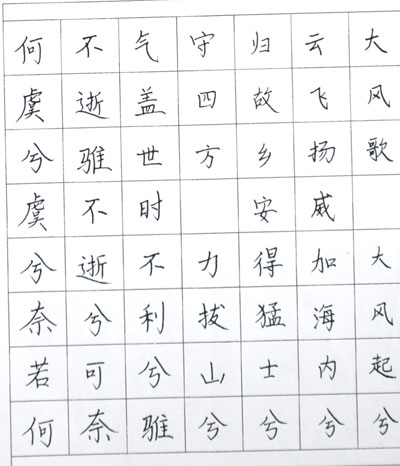 大风歌 大风起兮
云飞扬威加海内兮
归故乡安得猛士兮
守四方 力拔山兮
气盖世时不利兮骓
不逝骓不逝兮可奈
何虞兮虞兮奈若何